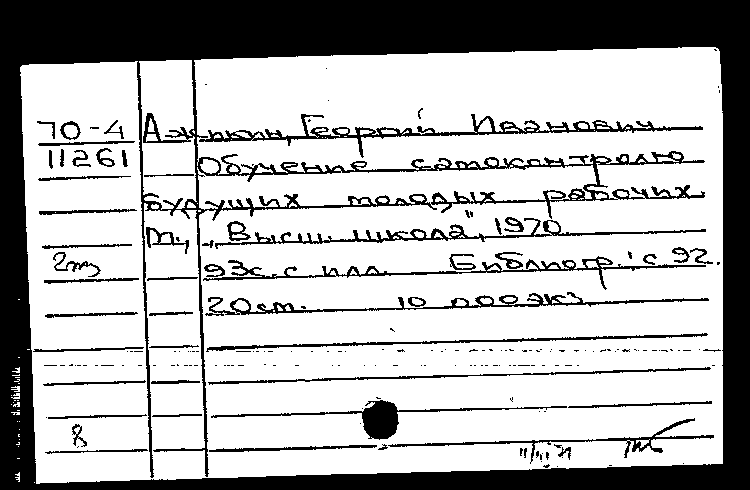 70-4 Ажикин, Георгий Иванович
11261 Обучение самоконтролю
будущих молодых рабочих.
М., "Высш. школа", 1970
93с. с илл. Библиогр.: с 92.
20см. 10 000экз
8